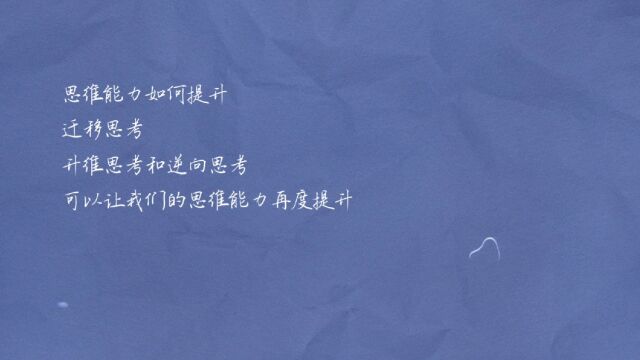 思维能力如何提升
迁移思考
升维思考和逆向思考
可以让我们的思维能力再度提升